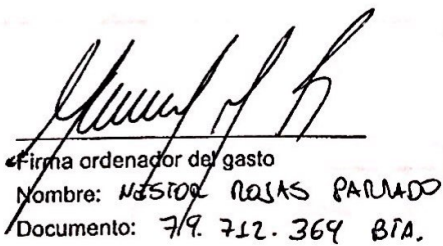 Firma ordenador del gasto
Nombre: NESTOR ROJAS PARRADO
Documento: 79.712.364 BTA.